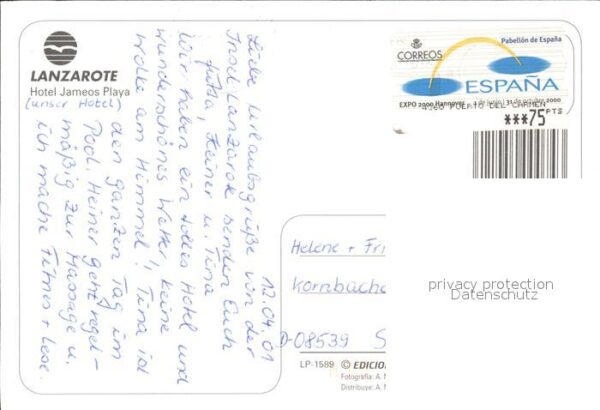 LANZAROTE
Hotel Jameos Playa
(unser Hotel)
12.04.01
Liebe Urlaubsgrüße von der
Insel Lanzarote senden Euch
Jutta, Heiner u. Tina
Wir haben ein tolles Hotel und
wunderschönes Wetter, keine
Wolke am Himmel! Tina ist
den ganzen Tag im
Pool. Heiner geht regel-
mäßig zur Massage u.
ich mache Fitnes + Lese.
CORREOS
Pabellón de España
ESPAÑA
EXPO 2000 Hannover 1 de junio / 31 de octubre 2000
PUERTO DEL CARMEN
***75 PTS
Helene + Fri
Kornbach
D-08539 S
LP-1589 © EDICION
Fotografía: A. M
Distribuye: A. M
privacy protection
Datenschutz